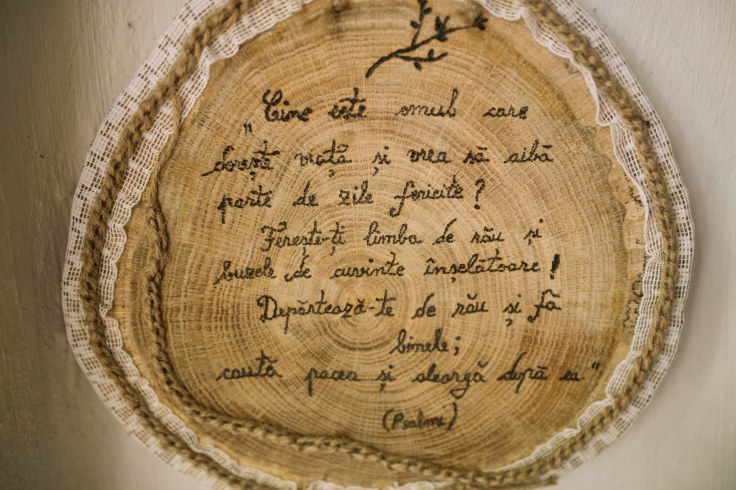 „Cine este omul care
dorește viață și vrea să aibă
parte de zile fericite?
Ferește-ți limba de rău și
buzele de cuvinte înșelătoare!
Depărtează-te de rău și fă
binele;
caută pacea și aleargă după ea"
(Psalmi)